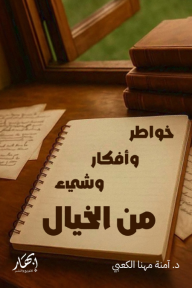 خواطر
وأفكار
وشيء
من الخيال
د. آمنة مهنا الكعبي
إبهار